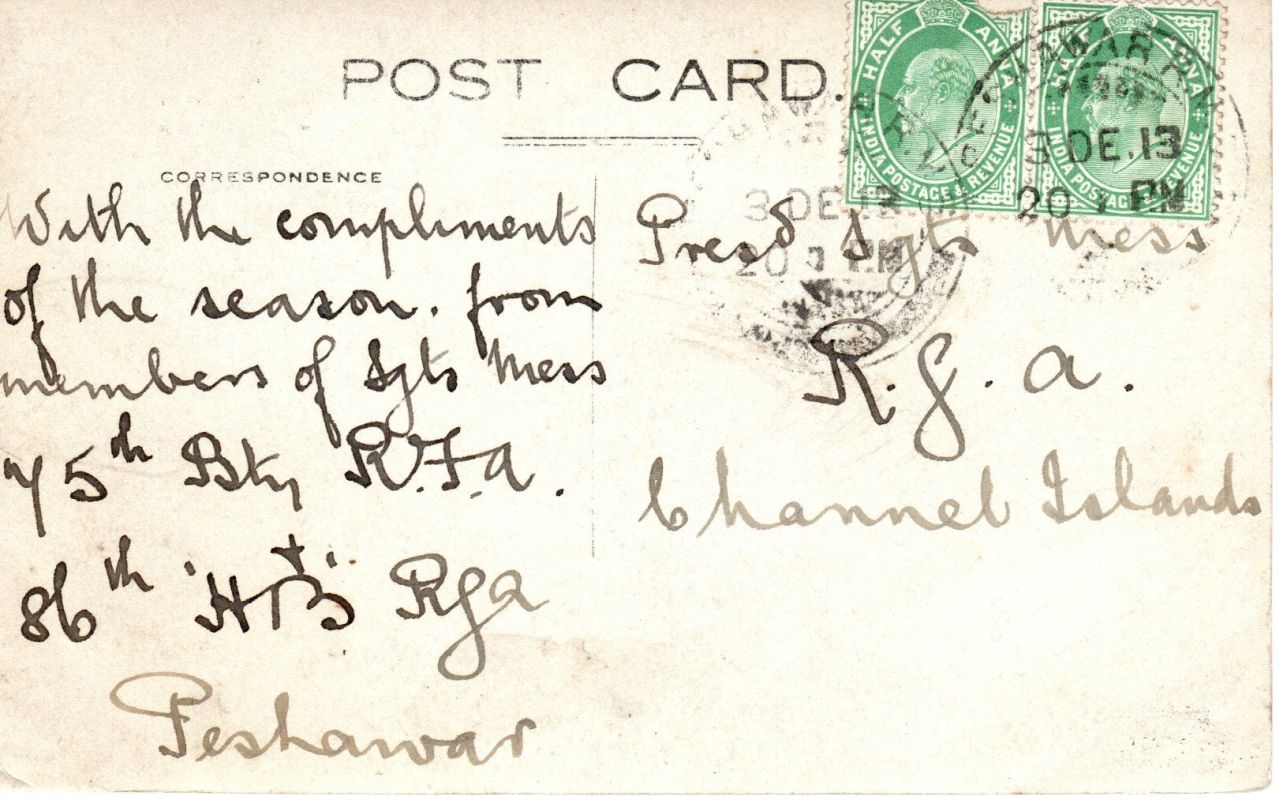 POST CARD.
CORRESPONDENCE
With the compliments
of the season. from
members of Sgts Mess
75th Bty R.F.A.
86th "HB" RGA
Peshawar
HALF ANNA
INDIA POSTAGE & REVENUE
HALF ANNA
INDIA POSTAGE & REVENUE
3 DE. 13
PM
3 DE. 13
PM
Presd Sgts Mess
R.G.A.
Channel Islands